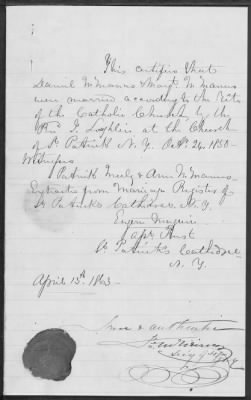 This certifies that
Daniel McManus & Margt. McManus
were married according to the Rite
of the Catholic Church by the
Rev. J. Loghlin at the Church
of St Patrick N. Y. Oct. 24, 1850
Witnesses
Patrick Neely & Ann McManus
Extracts from Marriage Register of
St Patricks Cathedral N. Y.
Eugene Maguire
Asst
St Patricks Cathedral
N. Y.
April 15th 1863
True & authentic